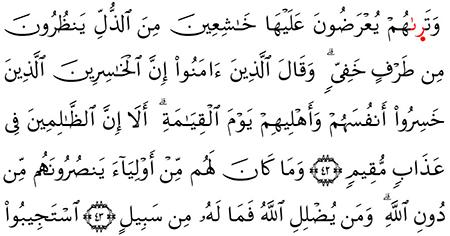 وَتَرٜىٰهُمْ يُعْرَضُونَ عَلَيْهَا خَٰشِعِينَ مِنَ ٱلذُّلِّ يَنظُرُونَ
مِن طَرْفٍ خَفِىٍّۗ وَقَالَ ٱلَّذِينَ ءَامَنُوٓا۟ إِنَّ ٱلْخَٰسِرِينَ ٱلَّذِينَ
خَسِرُوٓا۟ أَنفُسَهُمْ وَأَهْلِيهِمْ يَوْمَ ٱلْقِيَٰمَةِۗ أَلَآ إِنَّ ٱلظَّٰلِمِينَ فِى
عَذَابٍ مُّقِيمٍ ٤٢ وَمَا كَانَ لَهُم مِّنْ أَوْلِيَآءَ يَنصُرُونَهُم مِّن
دُونِ ٱللَّهِۗ وَمَن يُضْلِلِ ٱللَّهُ فَمَا لَهُۥ مِن سَبِيلٍ ٤٣ ٱسْتَجِيبُوا۟